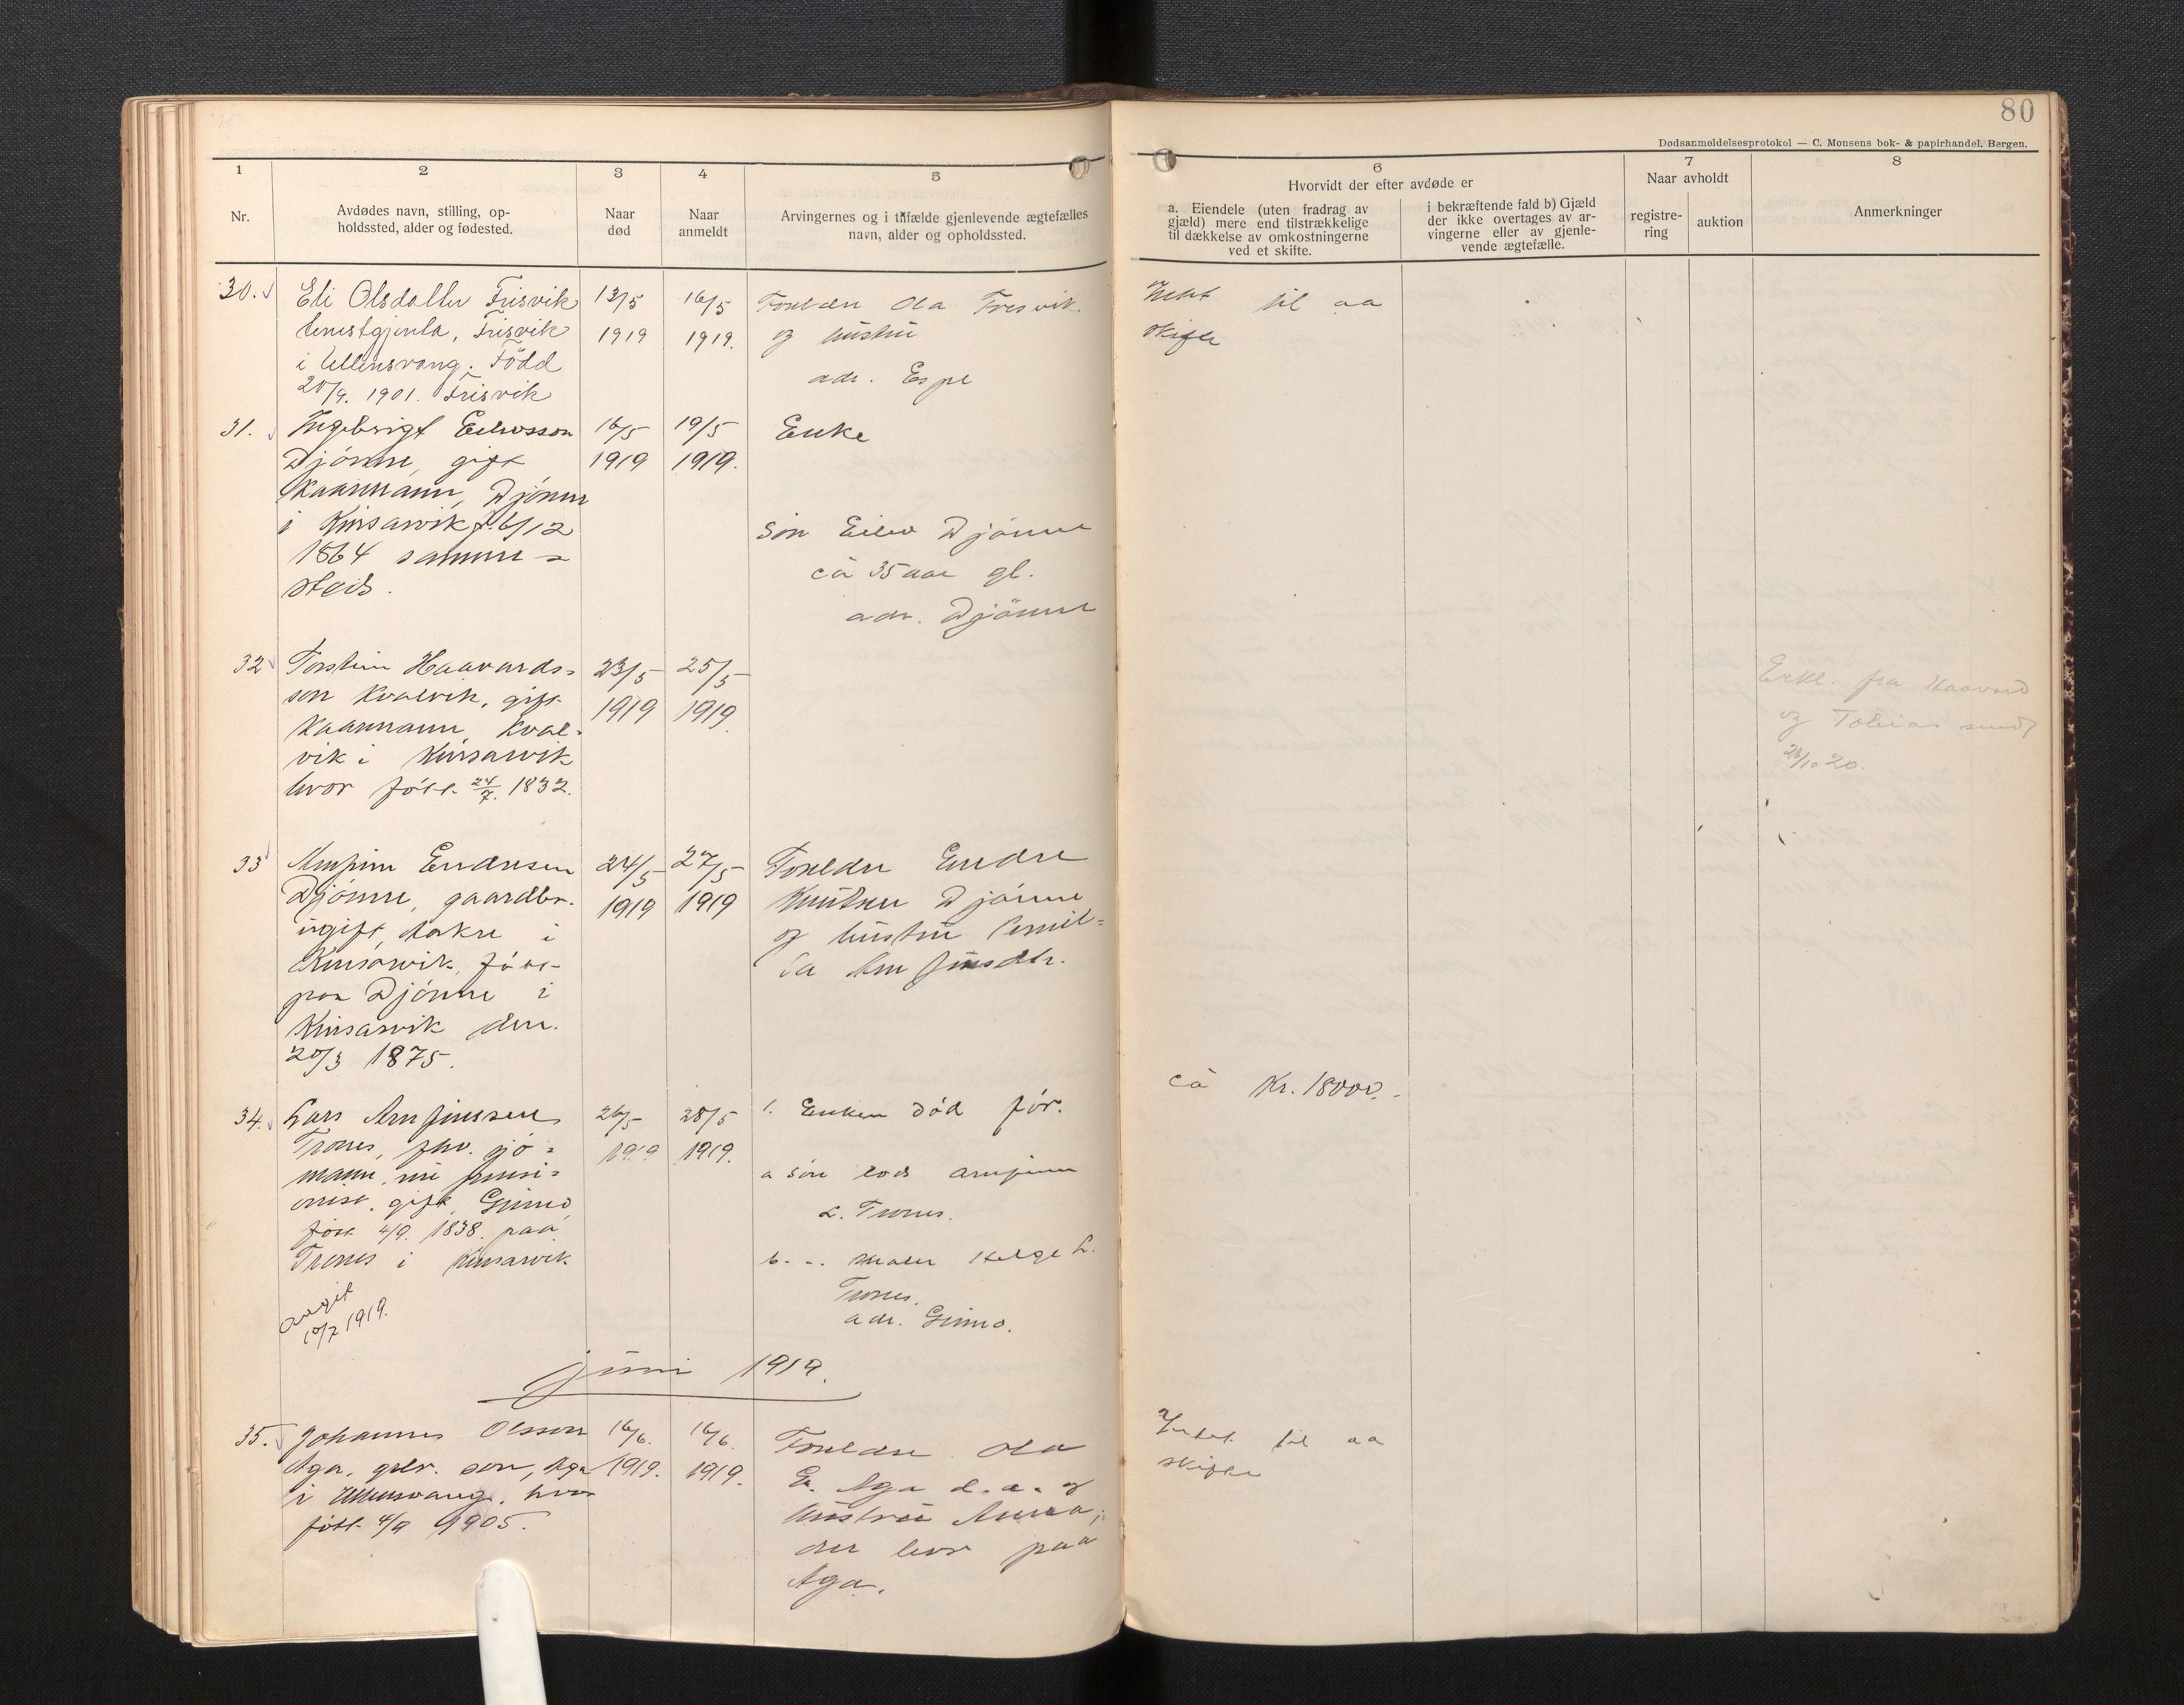 80
Dødsanmeldelsesprotokol — C. Monsens bok- & papirhandel, Bergen.
1
2
3
4
5
6
7
8
Nr.
Avdødes navn, stilling, op-
holdssted, alder og fødested.
Naar
død
Naar
anmeldt
Arvingernes og i tilfælde gjenlevende ægtefælles
navn, alder og opholdssted.
Hvorvidt der efter avdøde er
a. Eiendele (uten fradrag av
gjæld) mere end tilstrækkelige
til dækkelse av omkostningerne
ved et skifte.
i bekræftende fald b) Gjæld
der ikke overtages av ar-
vingerne eller av gjenle-
vende ægtefælle.
Naar avholdt
registre-
ring
auktion
Anmerkninger
30.
Eli Olsdatter Frisvik
tenestgjenta, Frisvik
i Ullensvang. Född
20/9. 1901. Frisvik
13/5
1919
16/5
1919.
Foreldre Ola Fresvik.
og hustru
adr. Espe
Intet til aa
skifte
31.
Ingebrigt Eilevsson
Djönne, gift
kaarmann, Djönne
i Kinsarvik f. 6/12
1864 samme-
steds.
16/5
1919
19/5
1919.
Enke
Sön Eilev Djönne
ca 35 aar gl.
adr. Djönne
32
Torstein Haavards-
son Kvalvik, gift
kaarmann Kval-
vik i Kinsarvik
hvor född 24/7. 1832.
23/5
1919
25/5
1919.
Erkl. fra Haavard
og Tobias
20.
33
Arnfinn Endresen
Djönne, gaardbr.
ugift, Aakre i
Kinsarvik, född
paa Djönne i
Kinsarvik den.
20/3 1875.
24/5
1919
27/5
1919
Foreldre Endre
Knutsen Djönne
og hustru
Arnfinsdtr.
34.
Lars Arnfinssen
Trones, fhv. sjö-
mann, nu pensi-
onist. gift, Grimo,
född 4/9. 1838. paa
Trones i Kinsarvik
26/5
1919
28/5
1919.
1. Enken död för.
a sön lods Arnfinn
L. Trones.
b. -"- maler Helge L.
Trones.
adr. Grimo.
ca Kr. 18000.-
avgit
10/7 1919.
juni 1919.
35.
Johannes Olsson
Aga, gbr. son, Aga
i Ullensvang. hvor
född 4/9 1905.
16/6.
1919.
16/6.
1919.
Foreldre Ola
E. Aga d.a. og
hustru Anna,
der bor paa
Aga.
Intet til aa
skifte